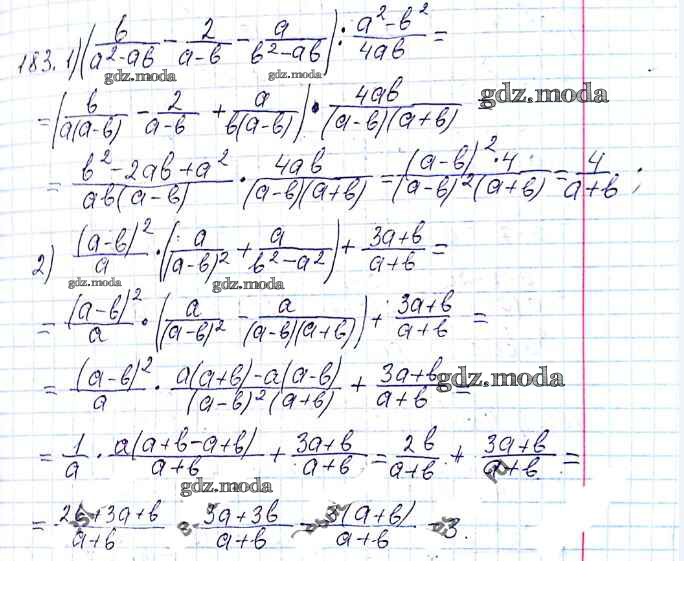 183. 1) (b/(a²-ab) - 2/(a-b) - a/(b²-ab)) : (a²-b²)/(4ab) =
gdz.moda gdz.moda
= (b/(a(a-b)) - 2/(a-b) + a/(b(a-b))) • 4ab/((a-b)(a+b)) = gdz.moda
= (b²-2ab+a²)/(ab(a-b)) • 4ab/((a-b)(a+b)) = ((a-b)²•4)/((a-b)²(a+b)) = 4/(a+b);
2) (a-b)²/a • (a/(a-b)² + a/(b²-a²)) + (3a+b)/(a+b) =
gdz.moda gdz.moda
= (a-b)²/a • (a/(a-b)² - a/((a-b)(a+b))) + (3a+b)/(a+b) =
= (a-b)²/a • (a(a+b)-a(a-b))/((a-b)²(a+b)) + (3a+b)/(a+b) = gdz.moda
= 1/a • a(a+b-a+b)/(a+b) + (3a+b)/(a+b) = 2b/(a+b) + (3a+b)/(a+b) =
gdz.moda
= (2b+3a+b)/(a+b) = (3a+3b)/(a+b) = 3(a+b)/(a+b) = 3.